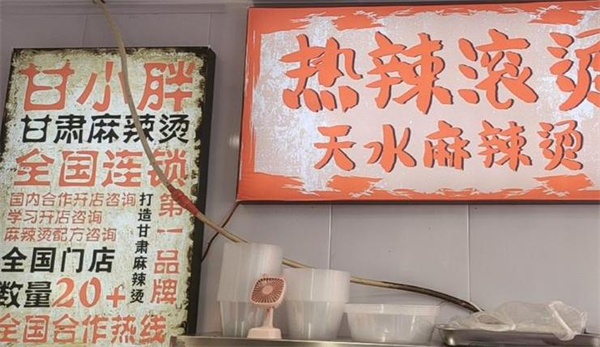 甘小胖
甘肃麻辣烫
全国连锁
国内合作开店咨询
学习开店咨询
麻辣烫配方咨询
全国门店
数量20+
打造甘肃麻辣烫
第一品牌
全国合作热线
热辣滚烫
天水麻辣烫